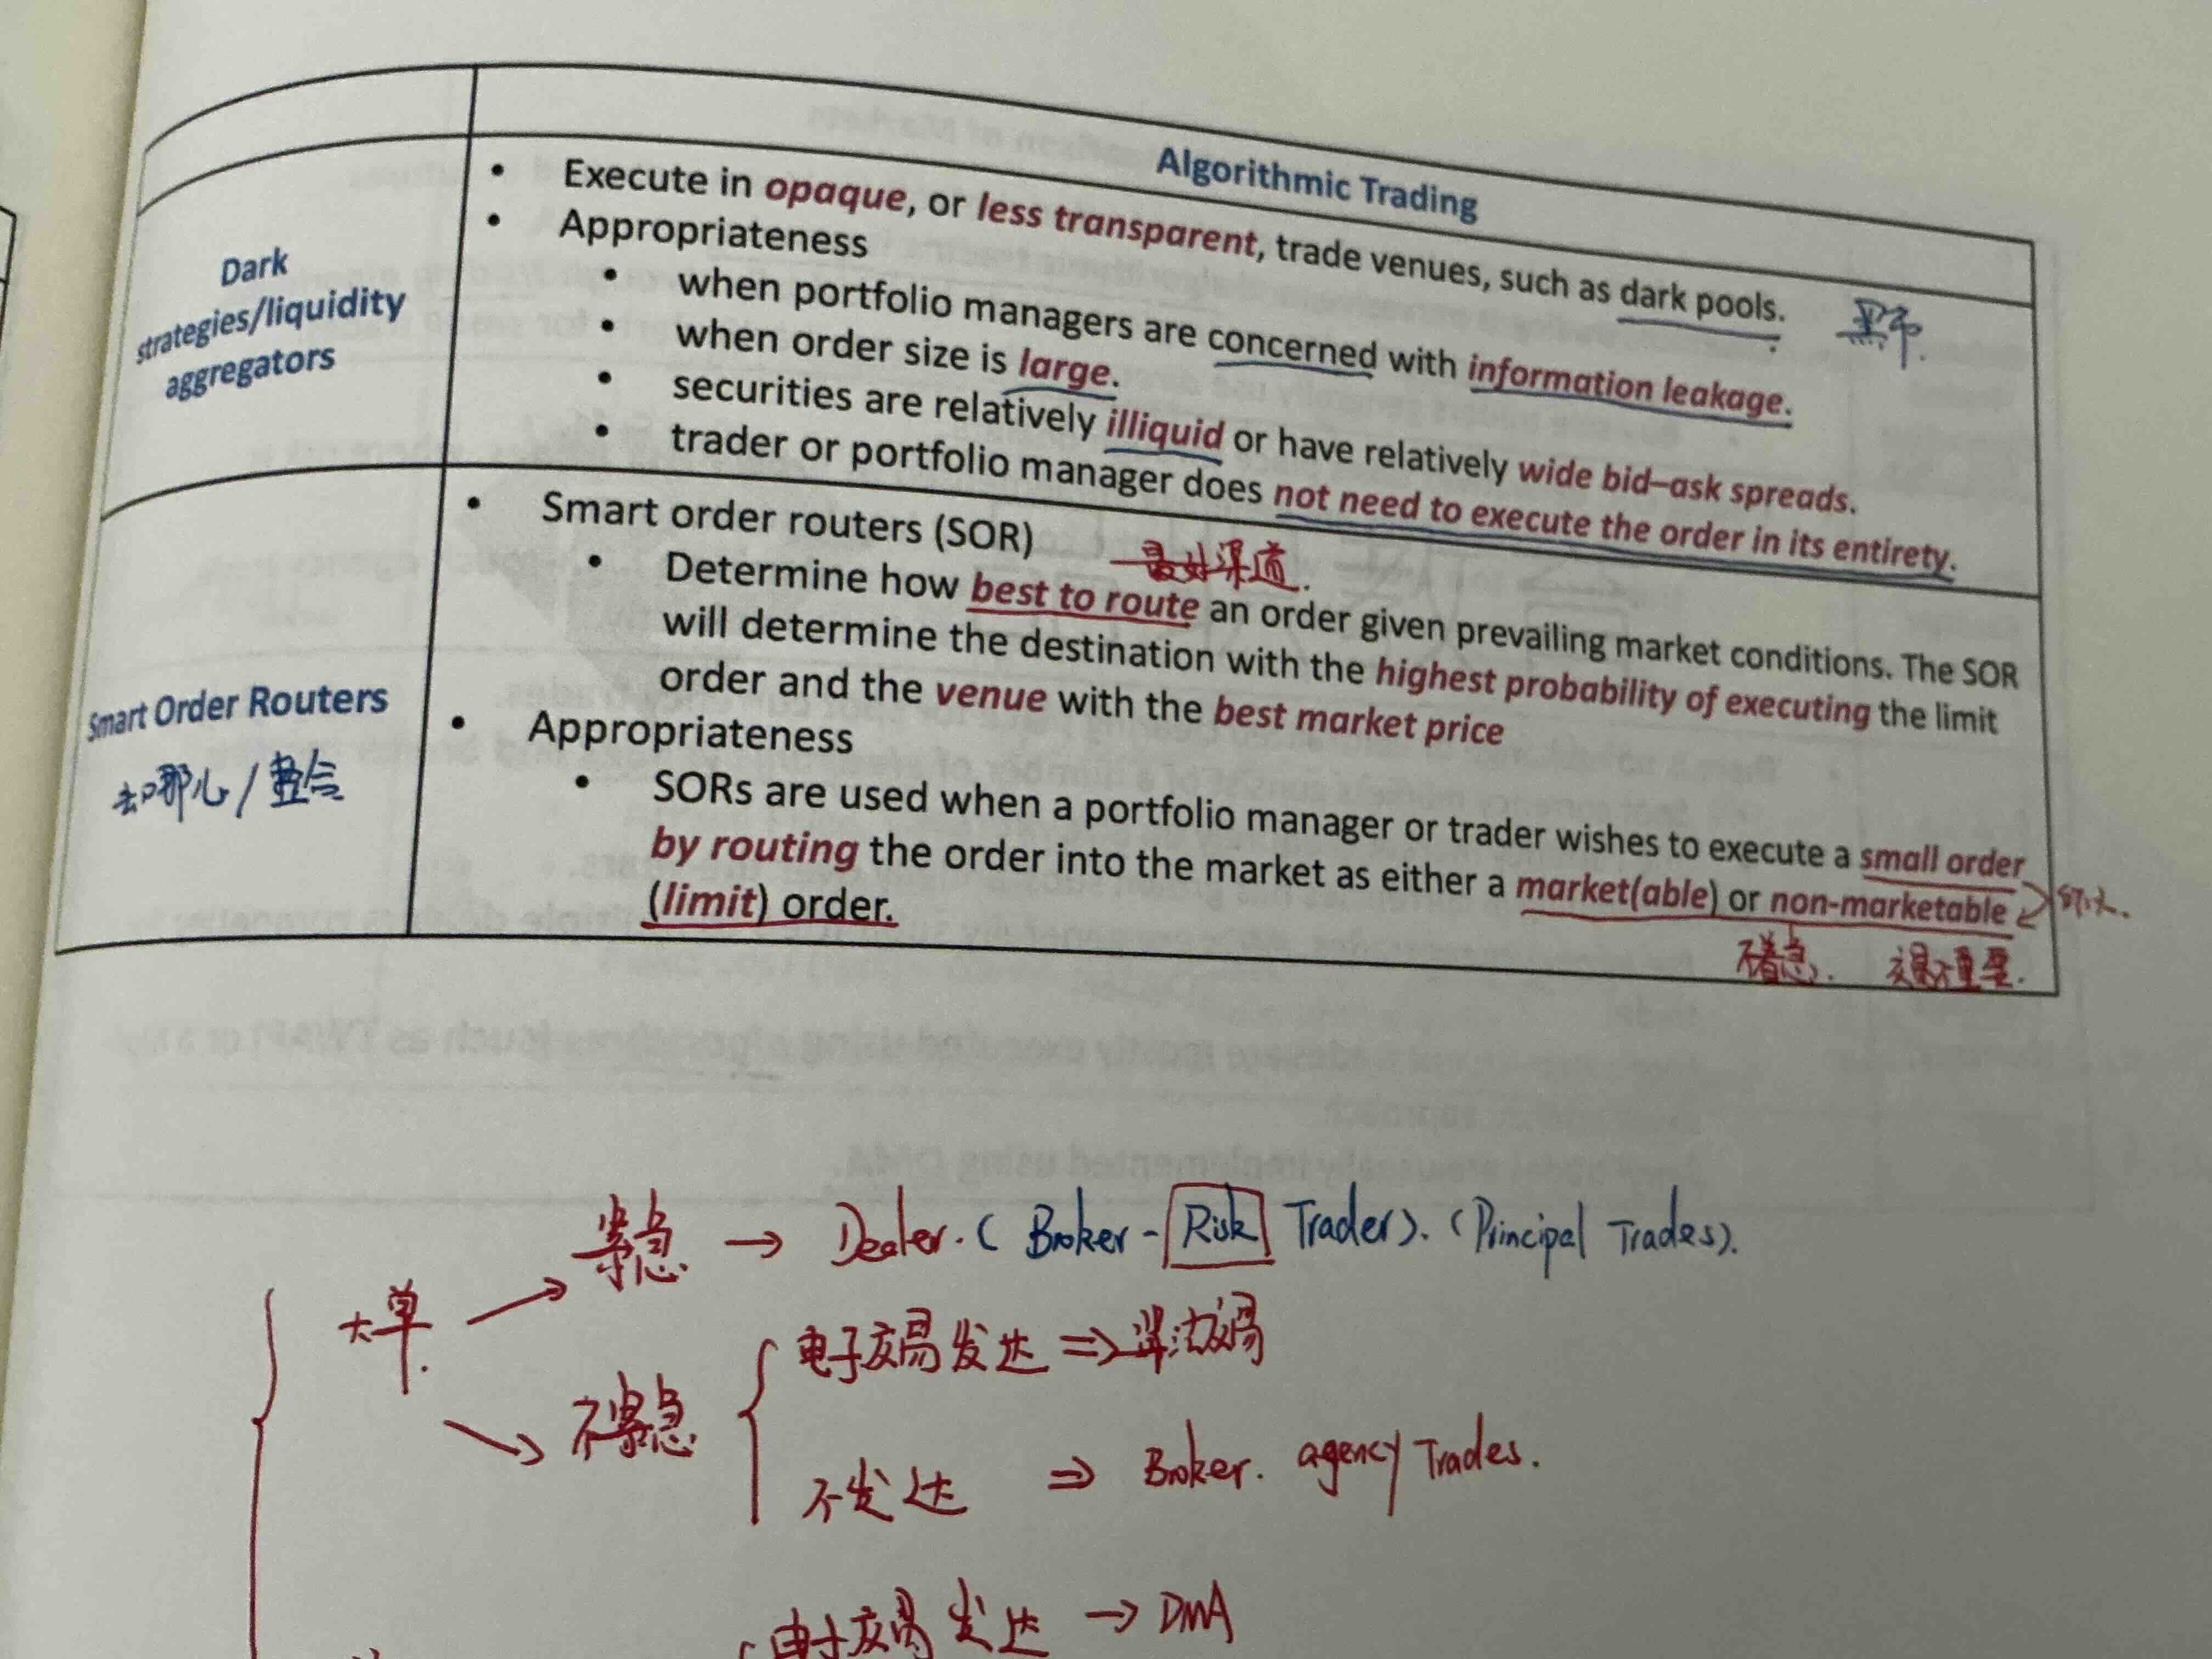 Algorithmic Trading
Dark
strategies/liquidity
aggregators
• Execute in opaque, or less transparent, trade venues, such as dark pools.
• Appropriateness
• when portfolio managers are concerned with information leakage.
• when order size is large.
• securities are relatively illiquid or have relatively wide bid–ask spreads.
• trader or portfolio manager does not need to execute the order in its entirety.
Smart Order Routers
去哪儿/整合
• Smart order routers (SOR)
最好渠道.
• Determine how best to route an order given prevailing market conditions. The SOR
will determine the destination with the highest probability of executing the limit
order and the venue with the best market price
• Appropriateness
• SORs are used when a portfolio manager or trader wishes to execute a small order
by routing the order into the market as either a market(able) or non-marketable
(limit) order.
不着急.
大单.
紧急 → Dealer. (Broker-Risk Trader). (Principal Trades).
不紧急
电子交易发达 ⇒ 算法交易
不发达 ⇒ Broker. agency Trades.
电子交易发达 → DMA